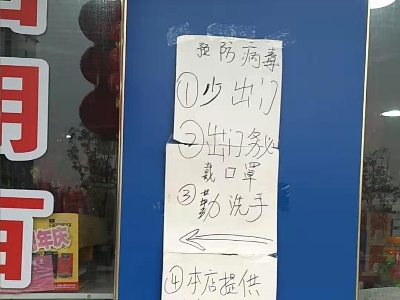 预防病毒
①少出门
②出门务必
戴口罩
③勤洗手
④本店提供
用
百
年庆